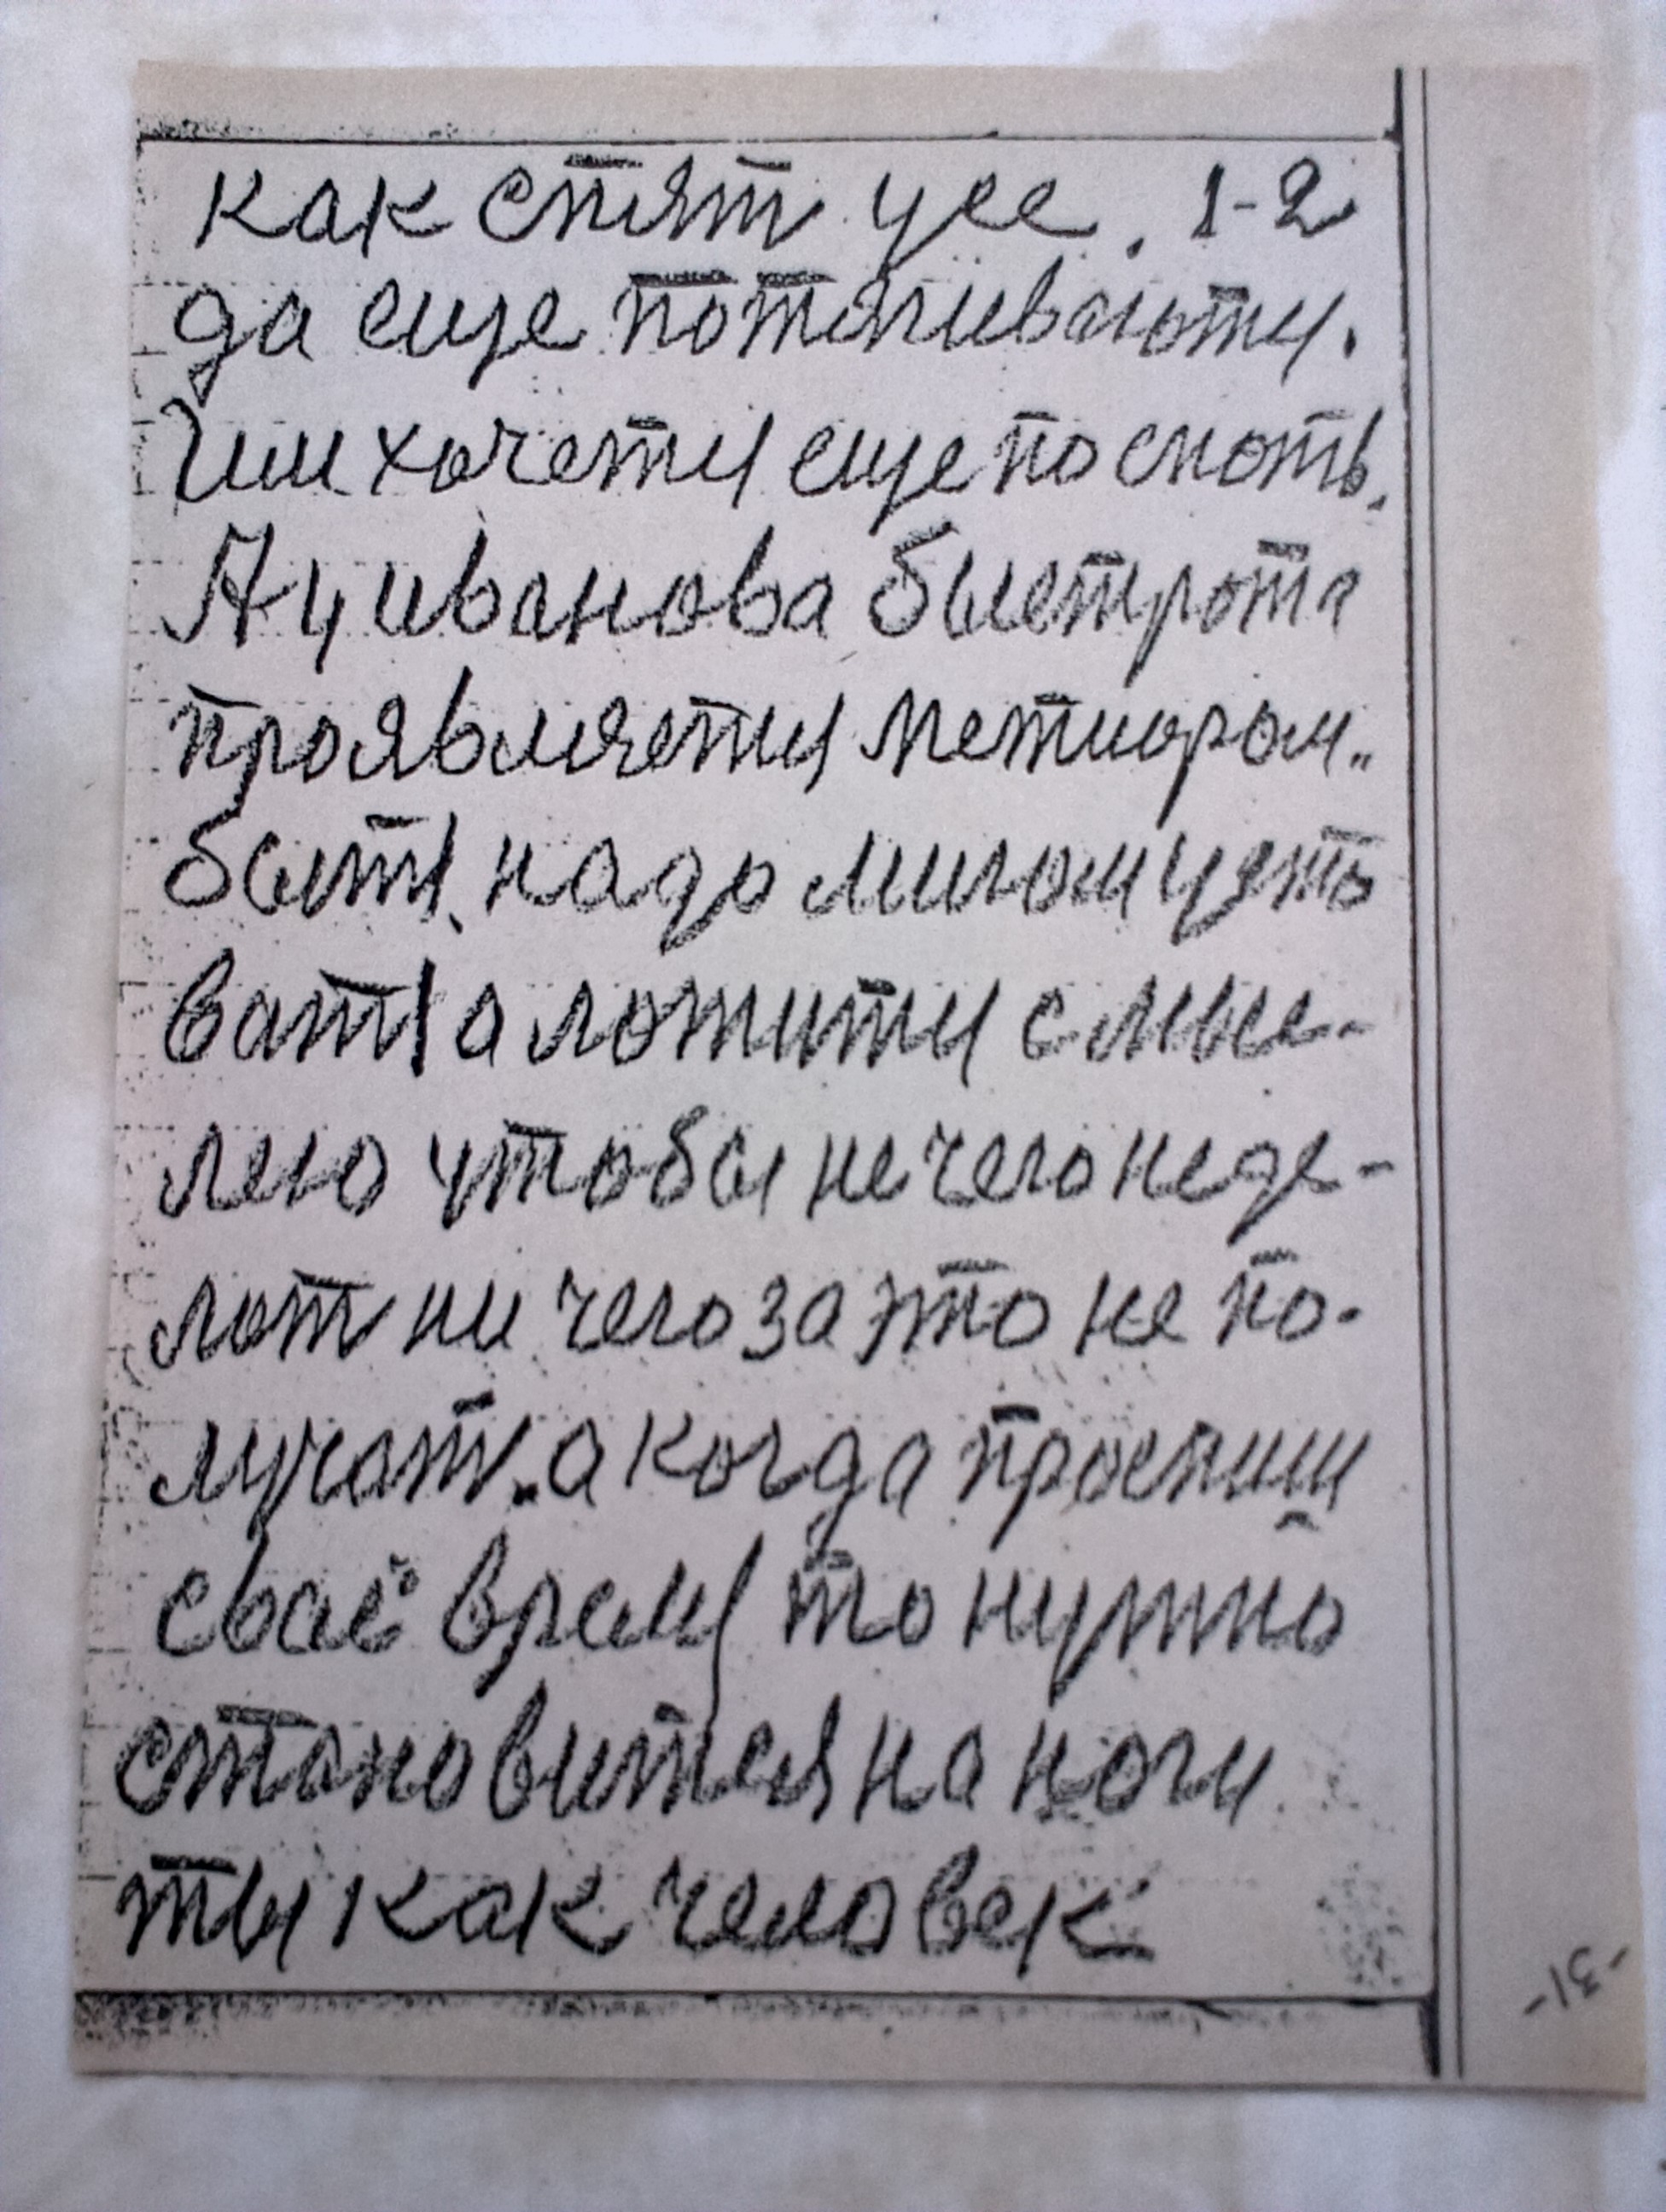 как спят усе. 1-2
да еще потягиваюты.
Им хочеты еще поспоть.
А у иванова быстрота
проявляеты метиором.
быть надо мигом уять
вать а ложиты с мыс-
лею чтобы не чего не де-
лот ни чего за это не по-
лучат. а когда проспиш
сваё время то нужно
становится на ноги
ты как человек
-31-